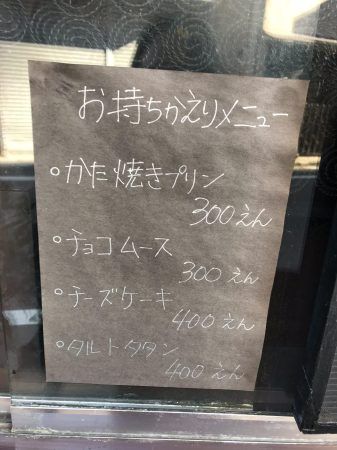 お持ちかえりメニュー
○かた焼きプリン
300えん
○チョコムース
300えん
○チーズケーキ
400えん
○タルトタタン
400えん